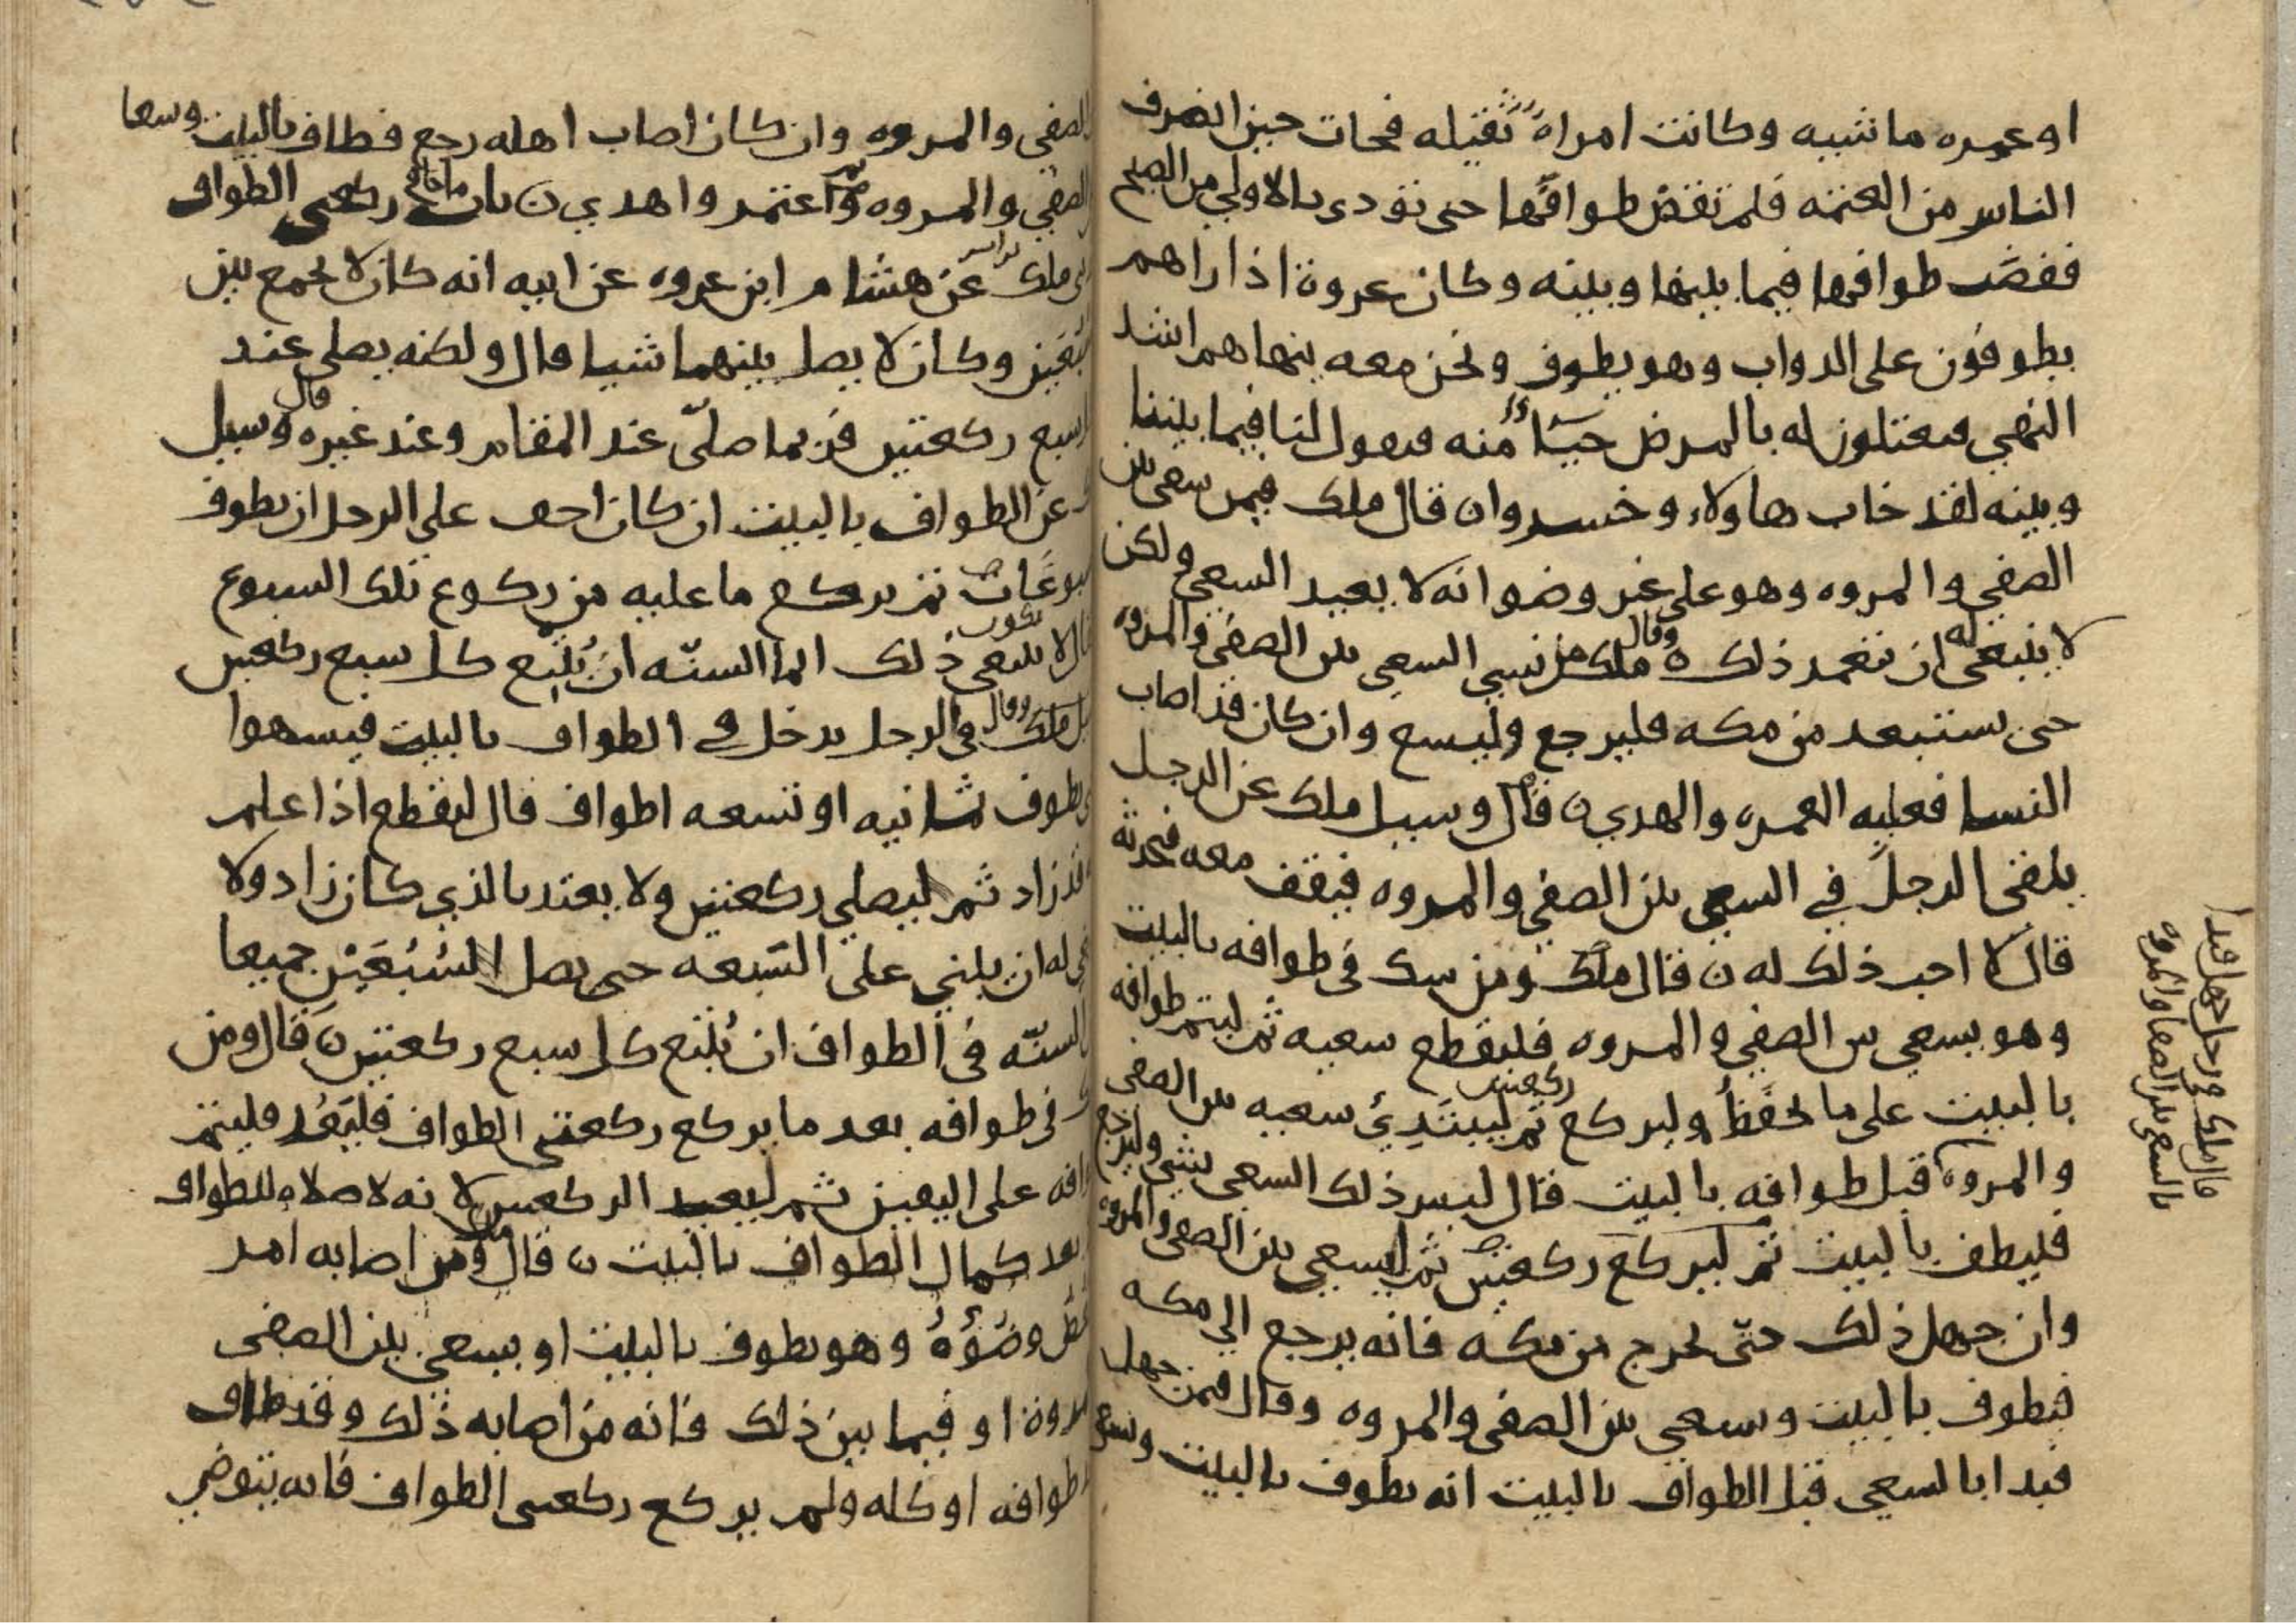 او عمره ماشيه وكانت امراة ثقيله فجات حين انصرف
الناس من العتمه فلم تقض طوافها حتى نودي بالاولي من الصبح
فقضت طوافها فيما بينها وبينه وكان عروة اذا راهم
يطوفون على الدواب وهو يطوف ونحن معه ينهاهم اشد
النهي فيعتلون له بالمرض حياً منه فيقول لنا فيما بيننا
وبينه لقد خاب هاولاء وخسروا ن قال ملك فيمن سعى بين
الصفي والمروه وهو على غير وضوا نه لا يعيد السعي ولكن
لا ينبغي له ان يتعمد ذلك ه وقال ملك من نسي السعي بين الصفي والمروه
حتى يستبعد من مكه فليرجع وليسع وان كان قد اصاب
النسا فعليه العمره والهدي ن قال وسيل ملك عن الرجل
يلقى الرجل في السعي بين الصفي والمروه فيقف معه فيحدثه
قال لا احب ذلك له ن قال ملك ومن شك في طوافه بالبيت
وهو يسعي بين الصفي والمروه فليقطع سعيه ثم ليتم طوافه
بالبيت على ما يحفظ وليركع ركعتين ثم ليبتدئ سعيه بين الصفي
والمروه قبل طوافه بالبيت قال ليس ذلك السعي بشي وليرجع
فليطف بالبيت ثم ليركع ركعتين ثم ليسعي بين الصفي والمروه
وان جهل ذلك حتى يخرج من مكه فانه يرجع الي مكه
فيطوف بالبيت ويسعي بين الصفي والمروه وقال فيمن جهل
فبدا بالسعي قبل الطواف بالبيت انه يطوف بالبيت ويسعى
قال ملك في رجل جهل فبدا
بالسعي بين الصفا والمروه
الصفي والمروه وان كان اصاب اهله رجع فطاف بالبيت وسعا
الصفي والمروه ثم اعتمر واهدي ن باب ما جا في ركعتي الطواف
ملك عن هشام ابن عروه عن ابيه انه كان لا يجمع بين
وكان لا يصل بينهما شيا قال ولكنه يصلي عند
سبع ركعتين فربما صلّى عند المقام وعند غيره قال وسيل
عن الطواف بالبيت ان كان اخف على الرجل ان يطوف
ثم يركع ما عليه من ركوع تلك السبوع
قال لا ينبغي ذلك انما السنّه ان يُتبع كل سبع ركعتين
ملك وقال في الرجل يدخل في الطواف بالبيت فيسهوا
يطوف ثمانيه او تسعه اطواف قال ليقطع اذا علم
قد زاد ثم ليصلي ركعتين ولا يعتد بالذي كان زاد ولا
له ان يبني على التسعه حتى يصل السُبُعَيْن جميعا
السنّه في الطواف ان يُتبع كل سبع ركعتين ن قال ومن
في طوافه بعد ما يركع ركعتي الطواف فليَعُد فليتم
على اليقين ثم ليعيد الركعتين لانه لا صلاه للطواف
بعد كمال الطواف بالبيت ن قال ومن اصابه امر
وضُوُهُ وهو يطوف بالبيت او يسعي بين الصفي
او فيما بين ذلك فانه من اصابه ذلك وقد طاف
طوافه او كله ولم يركع ركعتي الطواف فانه يتوضي